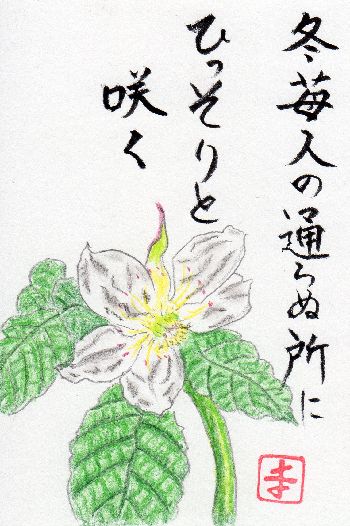 冬苺人の通らぬ所に
ひっそりと
咲く